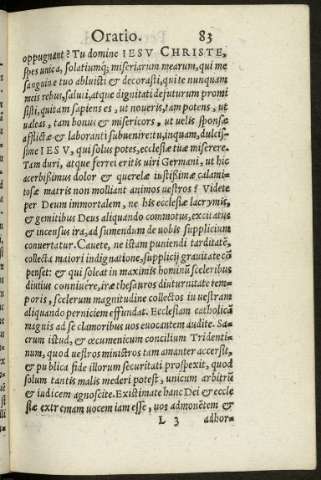 Oratio. 83
oppugnant? Tu domine IESV CHRISTE,
spes unica, solatiumq; miseriarum mearum, qui me
sanguine tuo abluisti & decorasti, qui te nunquam
meis rebus, saluti, atque dignitati defuturum promi
sisti, qui tam sapiens es, ut noueris, tam potens, ut
ualeas, tam bonus & misericors, ut uelis sponsæ
afflictæ & laboranti subuenire: tu, inquam, dulcis-
sime IESV, qui solus potes, ecclesiæ tuæ miserere.
Tam duri, atque ferrei eritis uiri Germani, ut hic
acerbissimus dolor & querelæ iustissimæ calami-
tosæ matris non molliant animos uestros? Videte
per Deum immortalem, ne his ecclesiæ lacrymis,
& gemitibus Deus aliquando commotus, excitatus
& incensus ira, ad sumendum de uobis supplicium
conuertatur. Cauete, ne istam puniendi tarditatē,
collecta maiori indignatione, supplicij grauitate cō
penset: & qui soleat in maximis hominū sceleribus
diutius conniuere, iræ thesauros diuturnitate tem-
poris, scelerum magnitudine collectos in uestram
aliquando perniciem effundat. Ecclesiam catholicā
magnis ad se clamoribus uos euocantem audite. Sa-
crum istud, & œcumenicum concilium Tridenti-
num, quod uestros ministros tam amanter accersit,
& publica fide illorum securitati prospexit, quod
solum tantis malis mederi potest, unicum arbitrū
& iudicem agnoscite. Existimate hanc Dei & eccle
siæ extremam uocem iam esse, uos admonētem &
L 3 adhor-